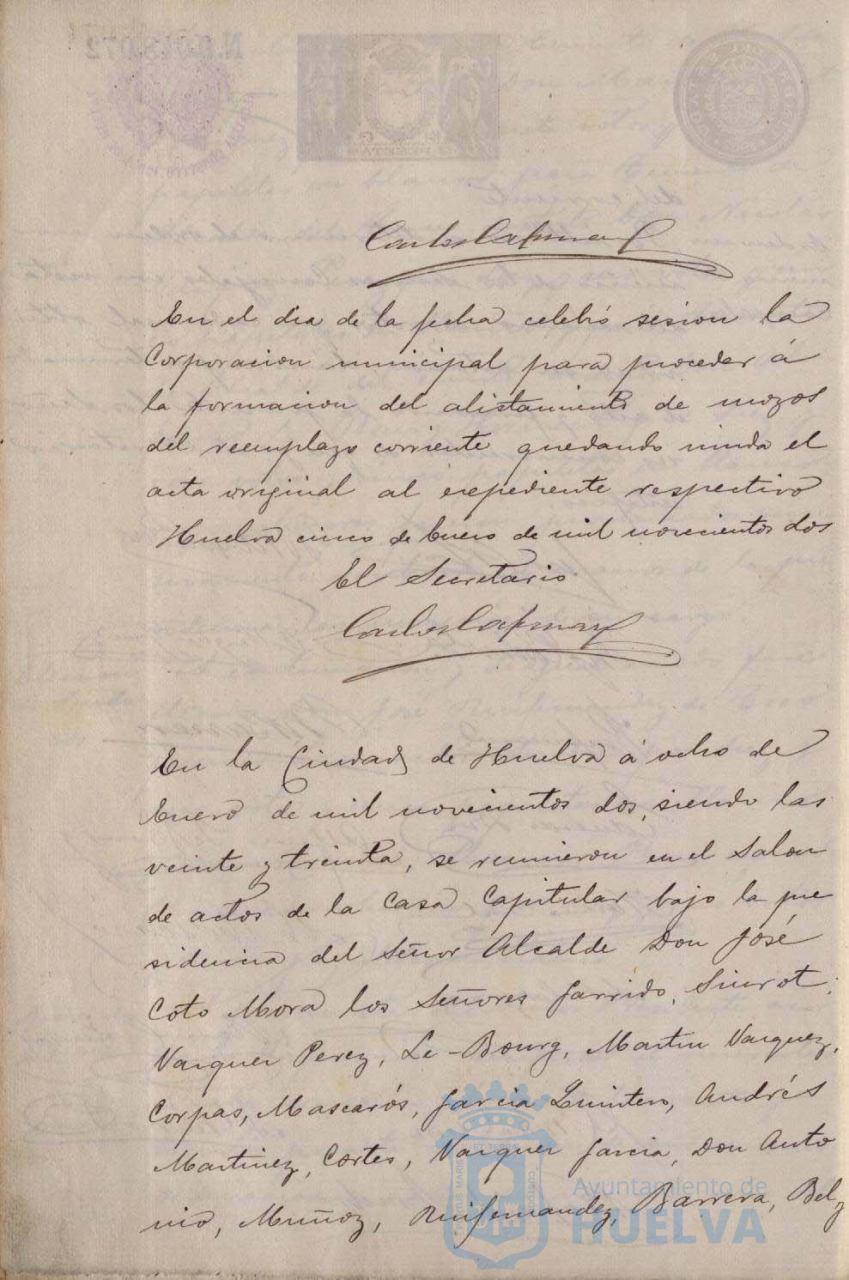 Carlos Cafman
En el dia de la fecha celebró sesion la
Corporacion municipal para proceder á
la formacion del alistamiento de mozos
del reemplazo corriente quedando unida el
acta original al expediente respectivo
Huelva cinco de Enero de mil novecientos dos
El Secretario
Carlos Cafman
En la Ciudad de Huelva á ocho de
Enero de mil novecientos dos, siendo las
veinte y treinta, se reunieron en el Salon
de actos de la Casa Capitular bajo la pre
sidencia del Señor Alcalde Don José
Coto Mora los Señores Garrido, Siurot,
Vazquez Perez, Le-Bourg, Martin Vazquez,
Corpas, Mascarós, Garcia Quintero, Andrés
Martinez, Cortes, Vazquez Garcia, Don Anto
nio, Muñoz, Ruifernandez, Barrera, Bel
Ayuntamiento de
HUELVA